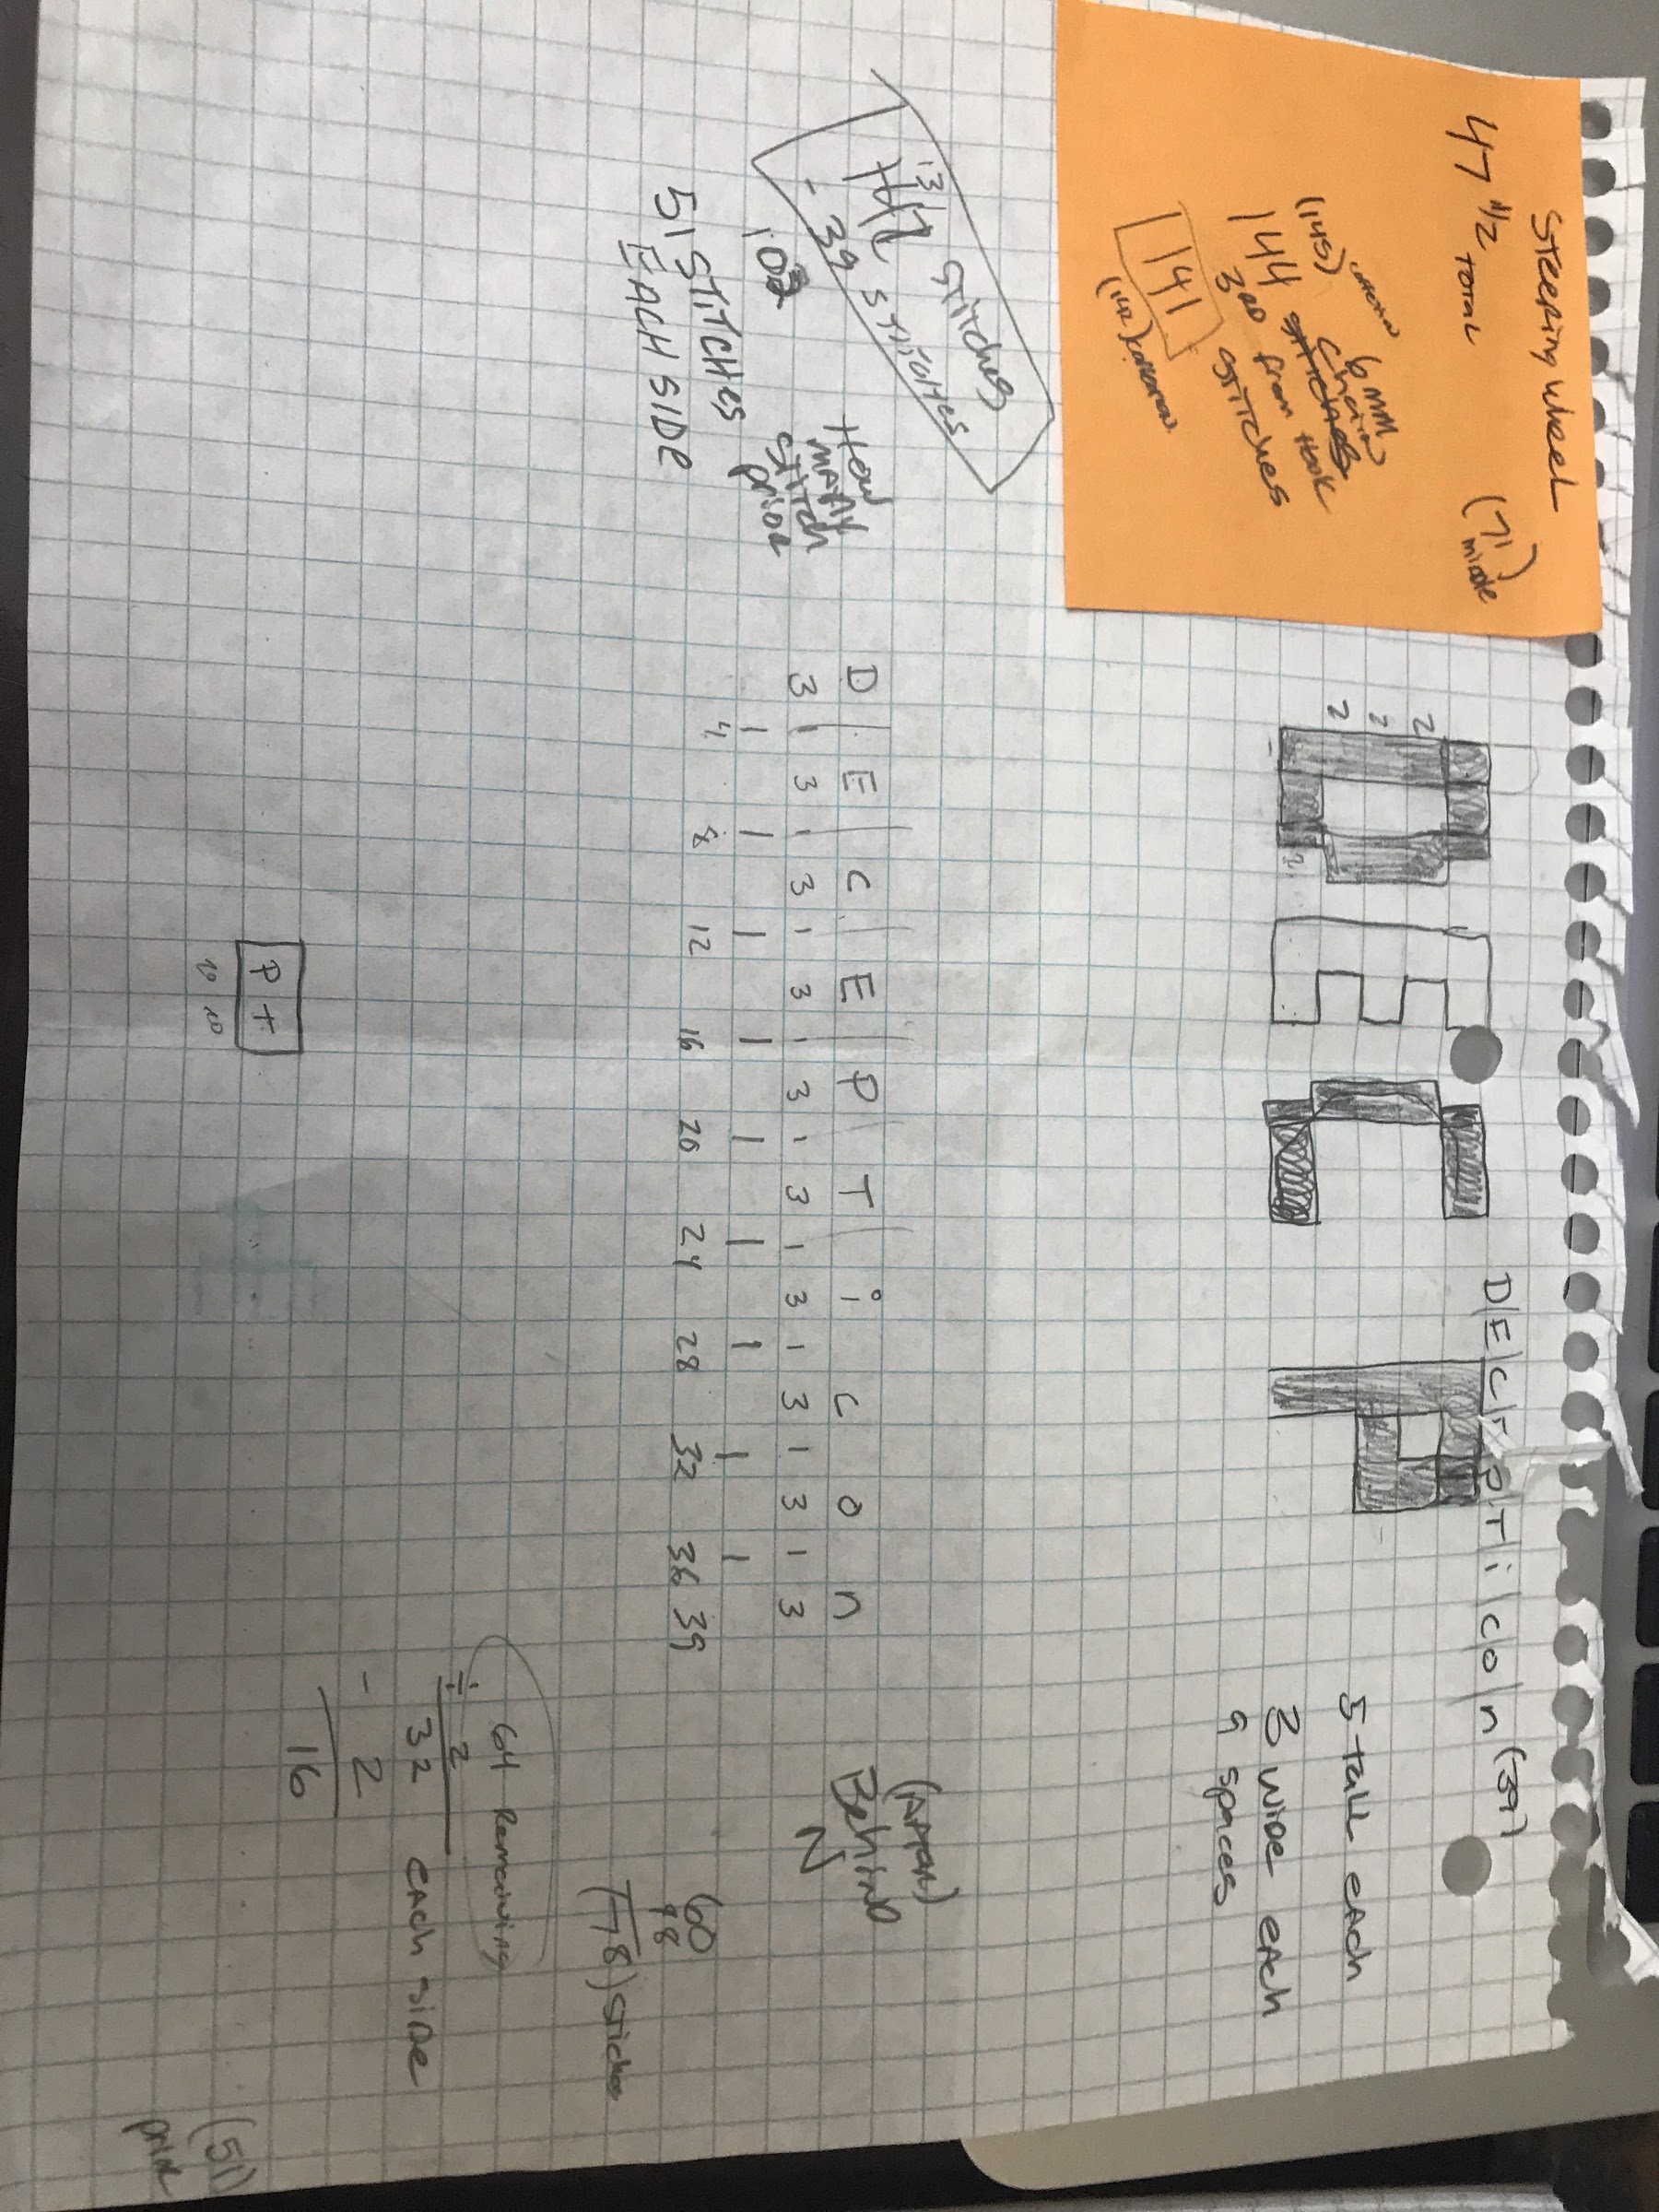 Steering wheel
47 1/2 TOTAL
(71)
middle
(145)
6 MM
144 stitches
chain
3RD from HOOK
141 stitches
(142)
D|E|C|E|P|T|i|c|o|n (39)
2 2 2
5 tall each
3 wide each
9 spaces
13
stitches
- 39 stitches
102
51 STITCHES
EACH SIDE
How
many
stitch
prior
D | E | C | E | P | T | i C O n
3 1 3 1 3 1 3 1 3 1 3 1 3 1 3 1 3 1 3
4 8 12 16 20 24 28 32 36 39
(After)
Behind
N
60
98
(178) stiches
64 Remaining
÷ 2
32 each side
- 2
16
P +
(51)
prior